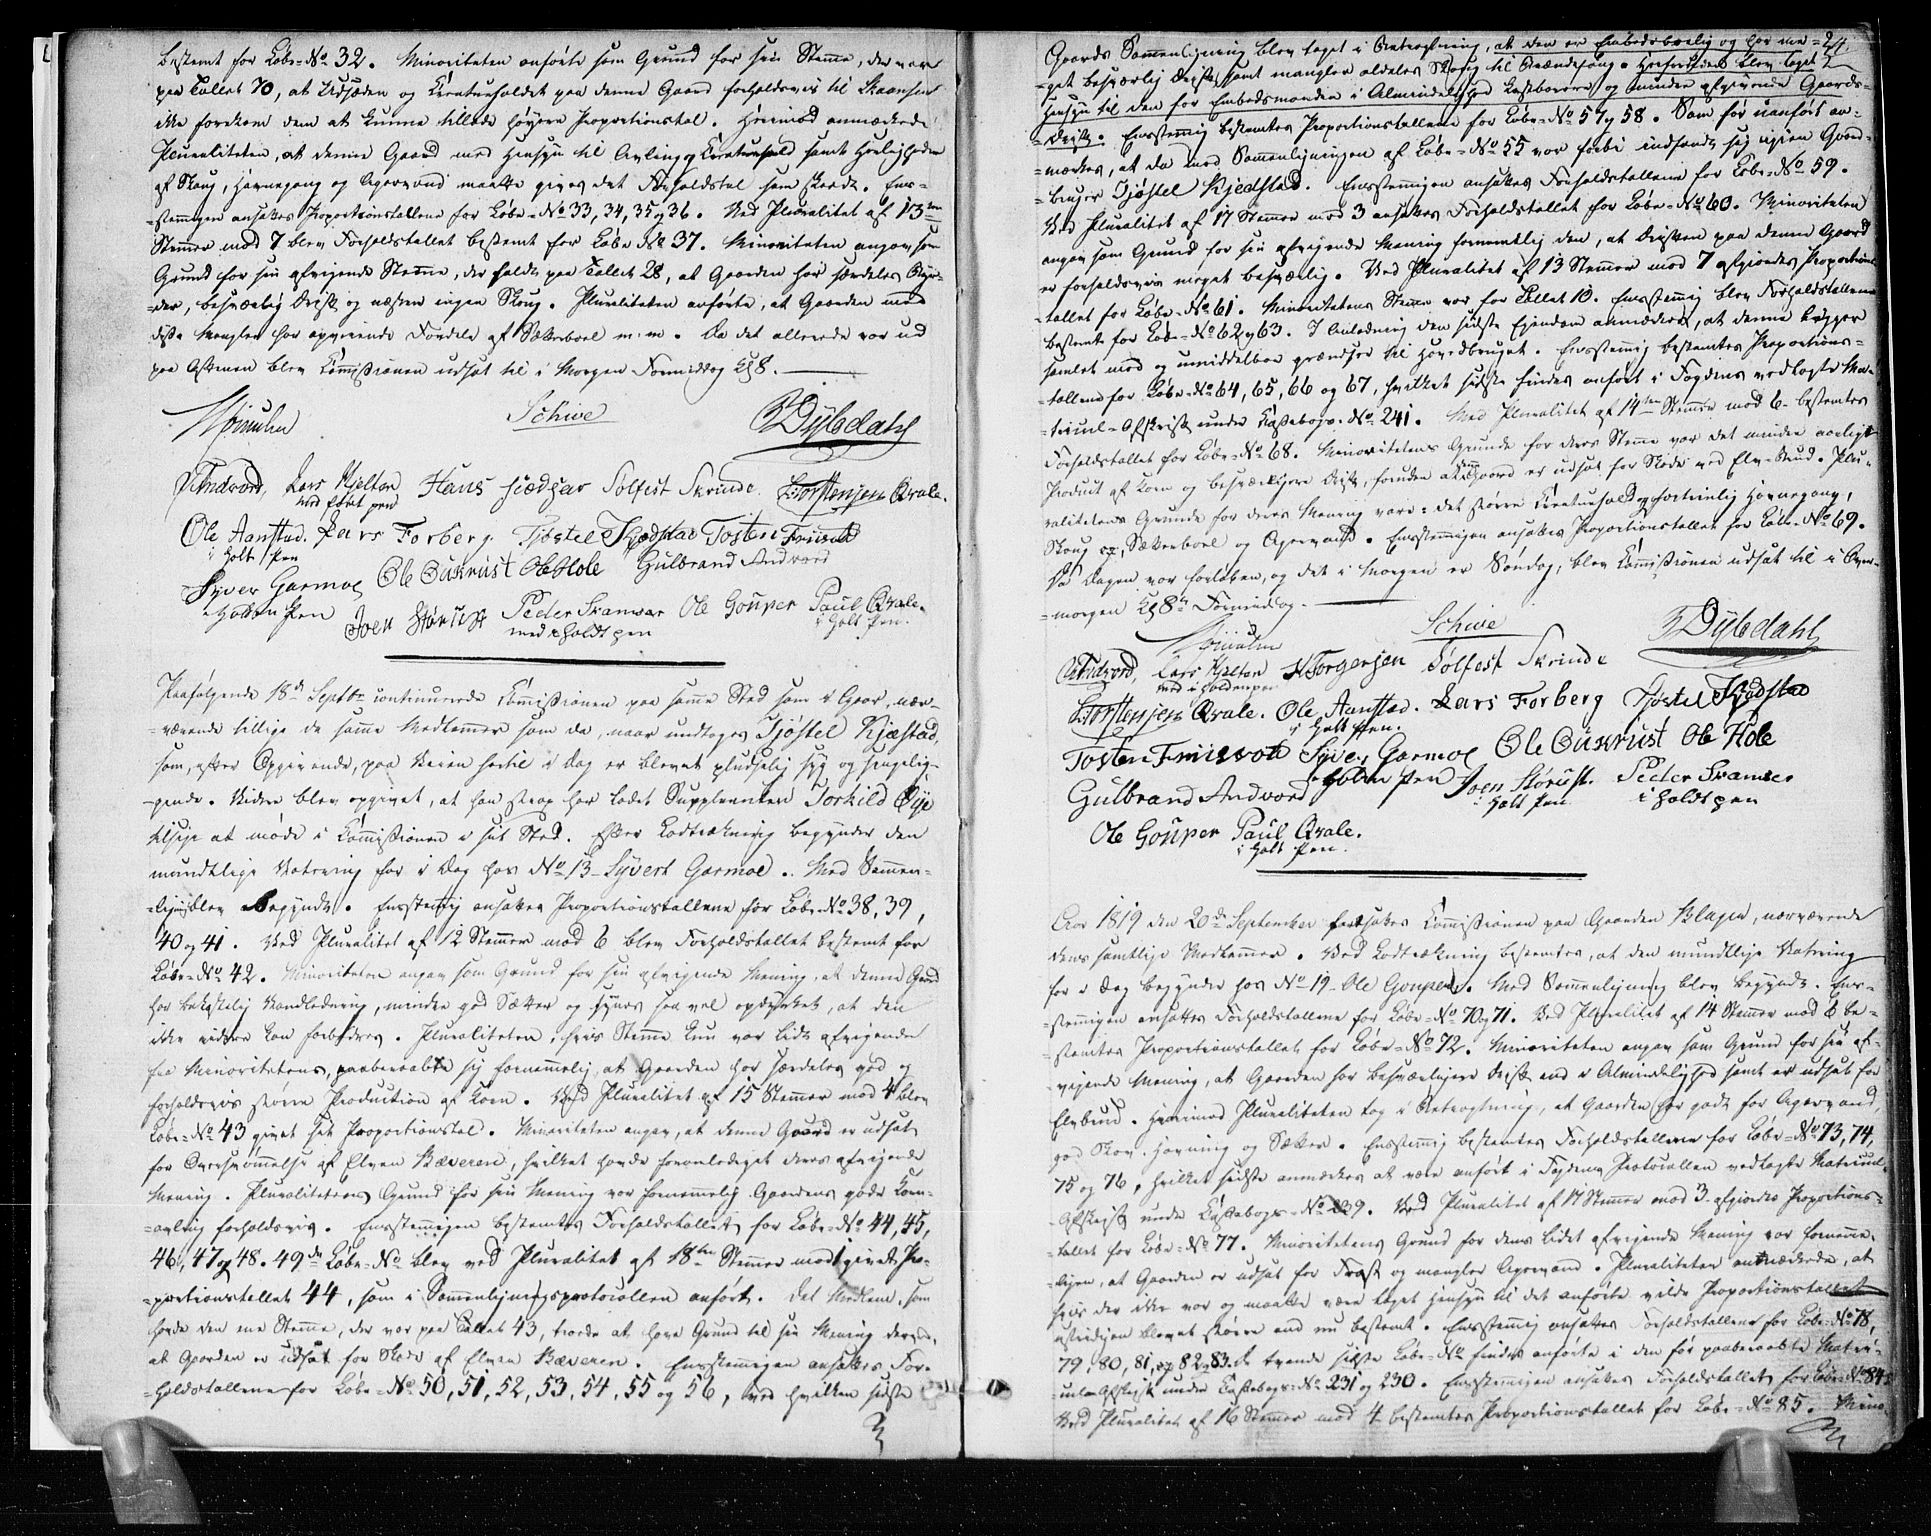 bestemt for Löbe-No 32. Minoriteten anförte som Grund for sin Stemme, der var
paa Tallet 70, at Udsæden og Creaturholdet paa denne Gaard forholdsvis til
ikke forekom dem at kunne tillade höyere Proportionstal. Herimod anmærkede
Pluraliteten, at denne Gaard med Hensyn til Avling og Creaturhold samt Herligheder
af Skoug, Havnegang og Agervand maatte gives det Forholdstal som skeedt. Een-
-stemmigen ansattes Proportionstallene for Löbe-No 33, 34, 35 og 36. Ved Pluralitet af 13
Stemmer mod 7 blev Forholdstallet bestemt for Löbe No 37. Minoriteten angav, som
Grund for sin afvigende Stemme, der faldt paa Tallet 28, at Gaarden har særdeles
, besværlig Drift og næsten ingen Skoug. Pluraliteten anförte, at Gaarden med
disse Mangler har opveiende Fordele af Sæterboel m: m. Da det allerede var ud
paa Aftenen blev Commissionen udsat til i Morgen Formiddag Kl 8.
Schive
Dybdahl
Andvord, Lars Kjelton Hans Sölfest Skrinde. Torstensen Qvale.
med fört pen
Ole Aanstad. Lars Forberg Tjöstel Kjedstad Tosten Friisvold
i Holt Pen
Syver Garmoe Ole Oukrust Ole Hole Gulbrand Andvord
i Holden Pen
Joen Störust Peder Skamsar Ole Gouper Paul Qvale.
med i holdt pen i Holt Pen.
Paafölgende 18d Septbr continuerede Commissionen paa samme Sted som i Gaar, nær-
-værende tillige de samme Medlemmer som da, naar undtages Tjöstel Kjæstad,
som, efter Opgivende, paa Veien hertil i Dag er blevet pludselig syg og sengelig-
-gende. Videre blev opgivet, at han strax har ladet Supplanten Torkild Öye
tilsige at möde i Commissionen i sit Sted. Efter Lodtrækning begynder den
mundtlige Votering for i Dag hos No 13 Syvert Garmoe. Med Sammen-
-ligning blev begyndt. Eenstemmig ansattes Proportionstallene for Löbe No 38, 39,
40 og 41. Ved Pluralitet af 12 Stemmer mod 6 blev Forholdstallet bestemt for
Löbe-No 42. Minoriteten angav som Grund for sin afvigende Mening, at denne Gaard
har bekostelig Vandledning, mindre god Sætter og synes saa vel opdyrket, at den
ikke videre kan forbedres. Pluraliteten, hvis Stemme kun var lidt afvigende
fra Minoritetens, paaberaabte sig fornemmelig, at Gaarden har særdeles god og
forholdsvis större Production af Korn. Ved Pluralitet af 15 Stemmer mod 4 blev
Löbe-No 43 givet sit Proportionstal. Minoriteten angav, at denne Gaard er udsat
for Oversvömmelse af Elven Bæveren, hvilket havde foranlediget deres afvigende
Mening. Pluralitetens Grund for sin Mening var fornemmelig Gaardens gode Korn-
-avling forholdsvis. Eenstemmigen bestemtes Forholdstallet for Löbe-No 44, 45,
46, 47 og 48. 49de Löbe-No blev ved Pluralitet af 18ten Stemmer mod 1 givet Pro-
-portionstallet 44, som i Sammenligningsprotocollen anfört. Det Medlem, som
havde den ene Stemme, der var paa Tallet 43, troede at have Grund til sin Mening deri,
at Gaarden er udsat for Skade af Elven Bæveren. Eenstemmigen ansattes For-
-holdstallene for Löbe-No 50, 51, 52, 53, 54, 55 og 56, ved hvilken sidste
24.
Gaards Sammenligning blev taget i Betragtning, at den er Embedsbolig og har me-
-get besværlig Drift samt mangler aldeles Skoug til Brændefang. Hosfordsden blev taget
Hensyn til den for Embedsmanden i Almindelighed kostbarere og mindre afgivende Gaards-
-Drift. Eenstemmig bestemtes Proportionstallene for Löbe-No 57 og 58. Som för uanfört an-
-mærkes, at da med Sammenligningen af Löbe-No 55 var forbi indfandt sig igien Gaard-
-bruger Tjöstel Kjedstad. Eenstemmigen ansattes Forholdstallene for Löbe-No 59.
Ved Pluralitet af 17 Stemmer mod 3 ansattes Forholdstallet for Löbe-No 60. Minoriteten
angav som Grund for sin afvigende Mening fornemmelig den, at Driften paa denne Gaard
er forholdsvis meget besværlig. Ved Pluralitet af 13 Stemmer mod 7 afgiordes Proportions-
-tallet for Löbe-No 61. Minoritetens Stemme var for Tallet 10. Eenstemmig blev Forholdstallene
bestemt for Löbe-No 62 og 63. I Anledning den sidste Eyendom anmærkes, at denne ligger
samlet med og umiddelbar grændser til Hovedbruget. Eenstemmig bestemtes Proportions-
-tallene for Löbe-No 64, 65, 66 og 67, hvilket sidste findes anfört i Fogdens vedtagte Ma-
-tricul-Afskrift under Cassebogs-No 241. Med Pluralitet af 14ten Stemmer mod 6 bestemtes
Forholdstallet for Löbe-No 68. Minoritetens Grunde for deres Stemme var det mindre aarlige
Product af Korn og besværligere Drift, foruden at denne Gaard er udsat for Skade ved Elv-Brud. Plu-
-ralitetens Grunde for deres Mening vare: det större Creaturhold og fortrinlig Havnegang,
Skoug og Sæterboel og Agervand. Eenstemmigen ansattes Proportionstallet for Löbe-No 69.
Da Dagen var forlöben, og det i Morgen er Söndag, blev Commissionen udsat til i Over-
-morgen Kl 8 Formiddag.
Schive
Dybdahl
Andvord, Lars Kjelton N Torgersen Sölfest Skrinde
med i Holden pen
Torstensen Qvale. Ole Aanstad. Lars Forberg Tjöstel Kjödstad
i Holt Pen.
Tosten Friisvold Syver Garmoe Ole Oukrust Ole Hole
Gulbrand Andvord i Holden Pen Joen Störust. Peder Skamser
i Holt Pen i holdt pen
Ole Gouper Paul Qvale.
i Holt Pen.
Aar 1819 den 20de September fortsattes Commissionen paa Gaarden Klager, nærværende
dens samtlige Medlemmer. Ved Lodtrækning bestemtes, at den mundtlige Votering
for i Dag begynder hos No 19 Ole Gouper. Med Sammenligning blev begyndt. Een-
-stemmigen ansattes Forholdstallene for Löbe-No 70 og 71. Ved Pluralitet af 14 Stemmer mod 6 be-
-stemtes Proportionstallet for Löbe-No 72. Minoriteten angav som Grund for sin af-
-vigende Mening, at Gaarden har besværligere Drift end i Almindelighed samt er udsat for
Elvbrud. Herimod Pluraliteten tog i Betragtning, at Gaarden har godt for Agervand,
god Skov, Havning og Sætter. Eenstemmig bestemtes Forholdstallene for Löbe-No 73, 74,
75 og 76, hvilket sidste anmærkes at være anfört i Fogdens Protocollen vedtagte Matricul-
-Afskrift under Cassebogs-No 239. Ved Pluralitet af 17 Stemmer mod 3 afgiordes Proportions-
-tallet for Löbe-No 77. Minoritetens Grund for dens lidet afvigende Mening var fornemme-
-ligen, at Gaarden er udsat for Frost og mangler Agervand. Pluraliteten anmærkede, at
hvis der ikke var og maatte være taget Hensyn til det anförte vilde Proportionstallet
utvivlsomt blevet större end nu bestemt. Eenstemmig ansattes Forholdstallene for Löbe-No 78,
79, 80, 81, 82 og 83. De tvende sidste Löbe-No findes anförte i den för paaberaabte Matri-
-culs Afskrift under Cassebogs-No 231 og 230. Eenstemmigen ansattes Forholdstallet for Löbe-No 84.
Ved Pluralitet af 16 Stemmer mod 4 bestemtes Proportionstallet for Löbe-No 85. Mino-